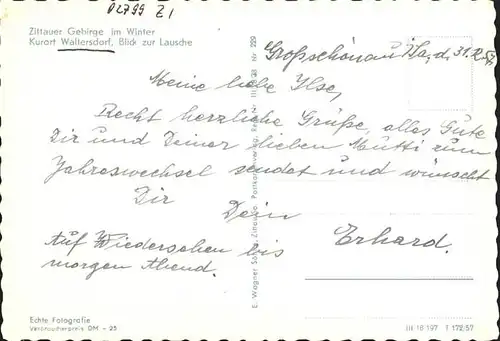 02799 Z1
Zittauer Gebirge im Winter
Kurort Waltersdorf, Blick zur Lausche
Großschönau/Sa, d. 31.12.57
Meine liebe Ilse,
Recht herzliche Grüße, alles Gute
Dir und Deiner lieben Mutti zum
Jahreswechsel sendet und wünscht
Dir Dein
Erhard.
Auf Wiedersehen bis
morgen Abend.
E. Wagner Söhne, Zittau, Postkartenverlag
Nr 229
Echte Fotografie
Verbraucherpreis DM -.25
III 18 197 T 172/57